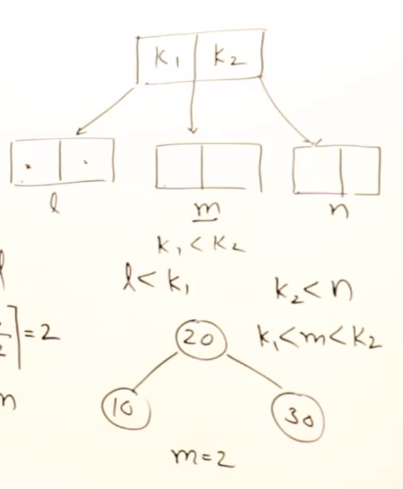 k₁ k₂
l m n
k₁ < k₂
l < k₁
k₂ < n
k₁ < m < k₂
= 2
n
20
10 30
m = 2